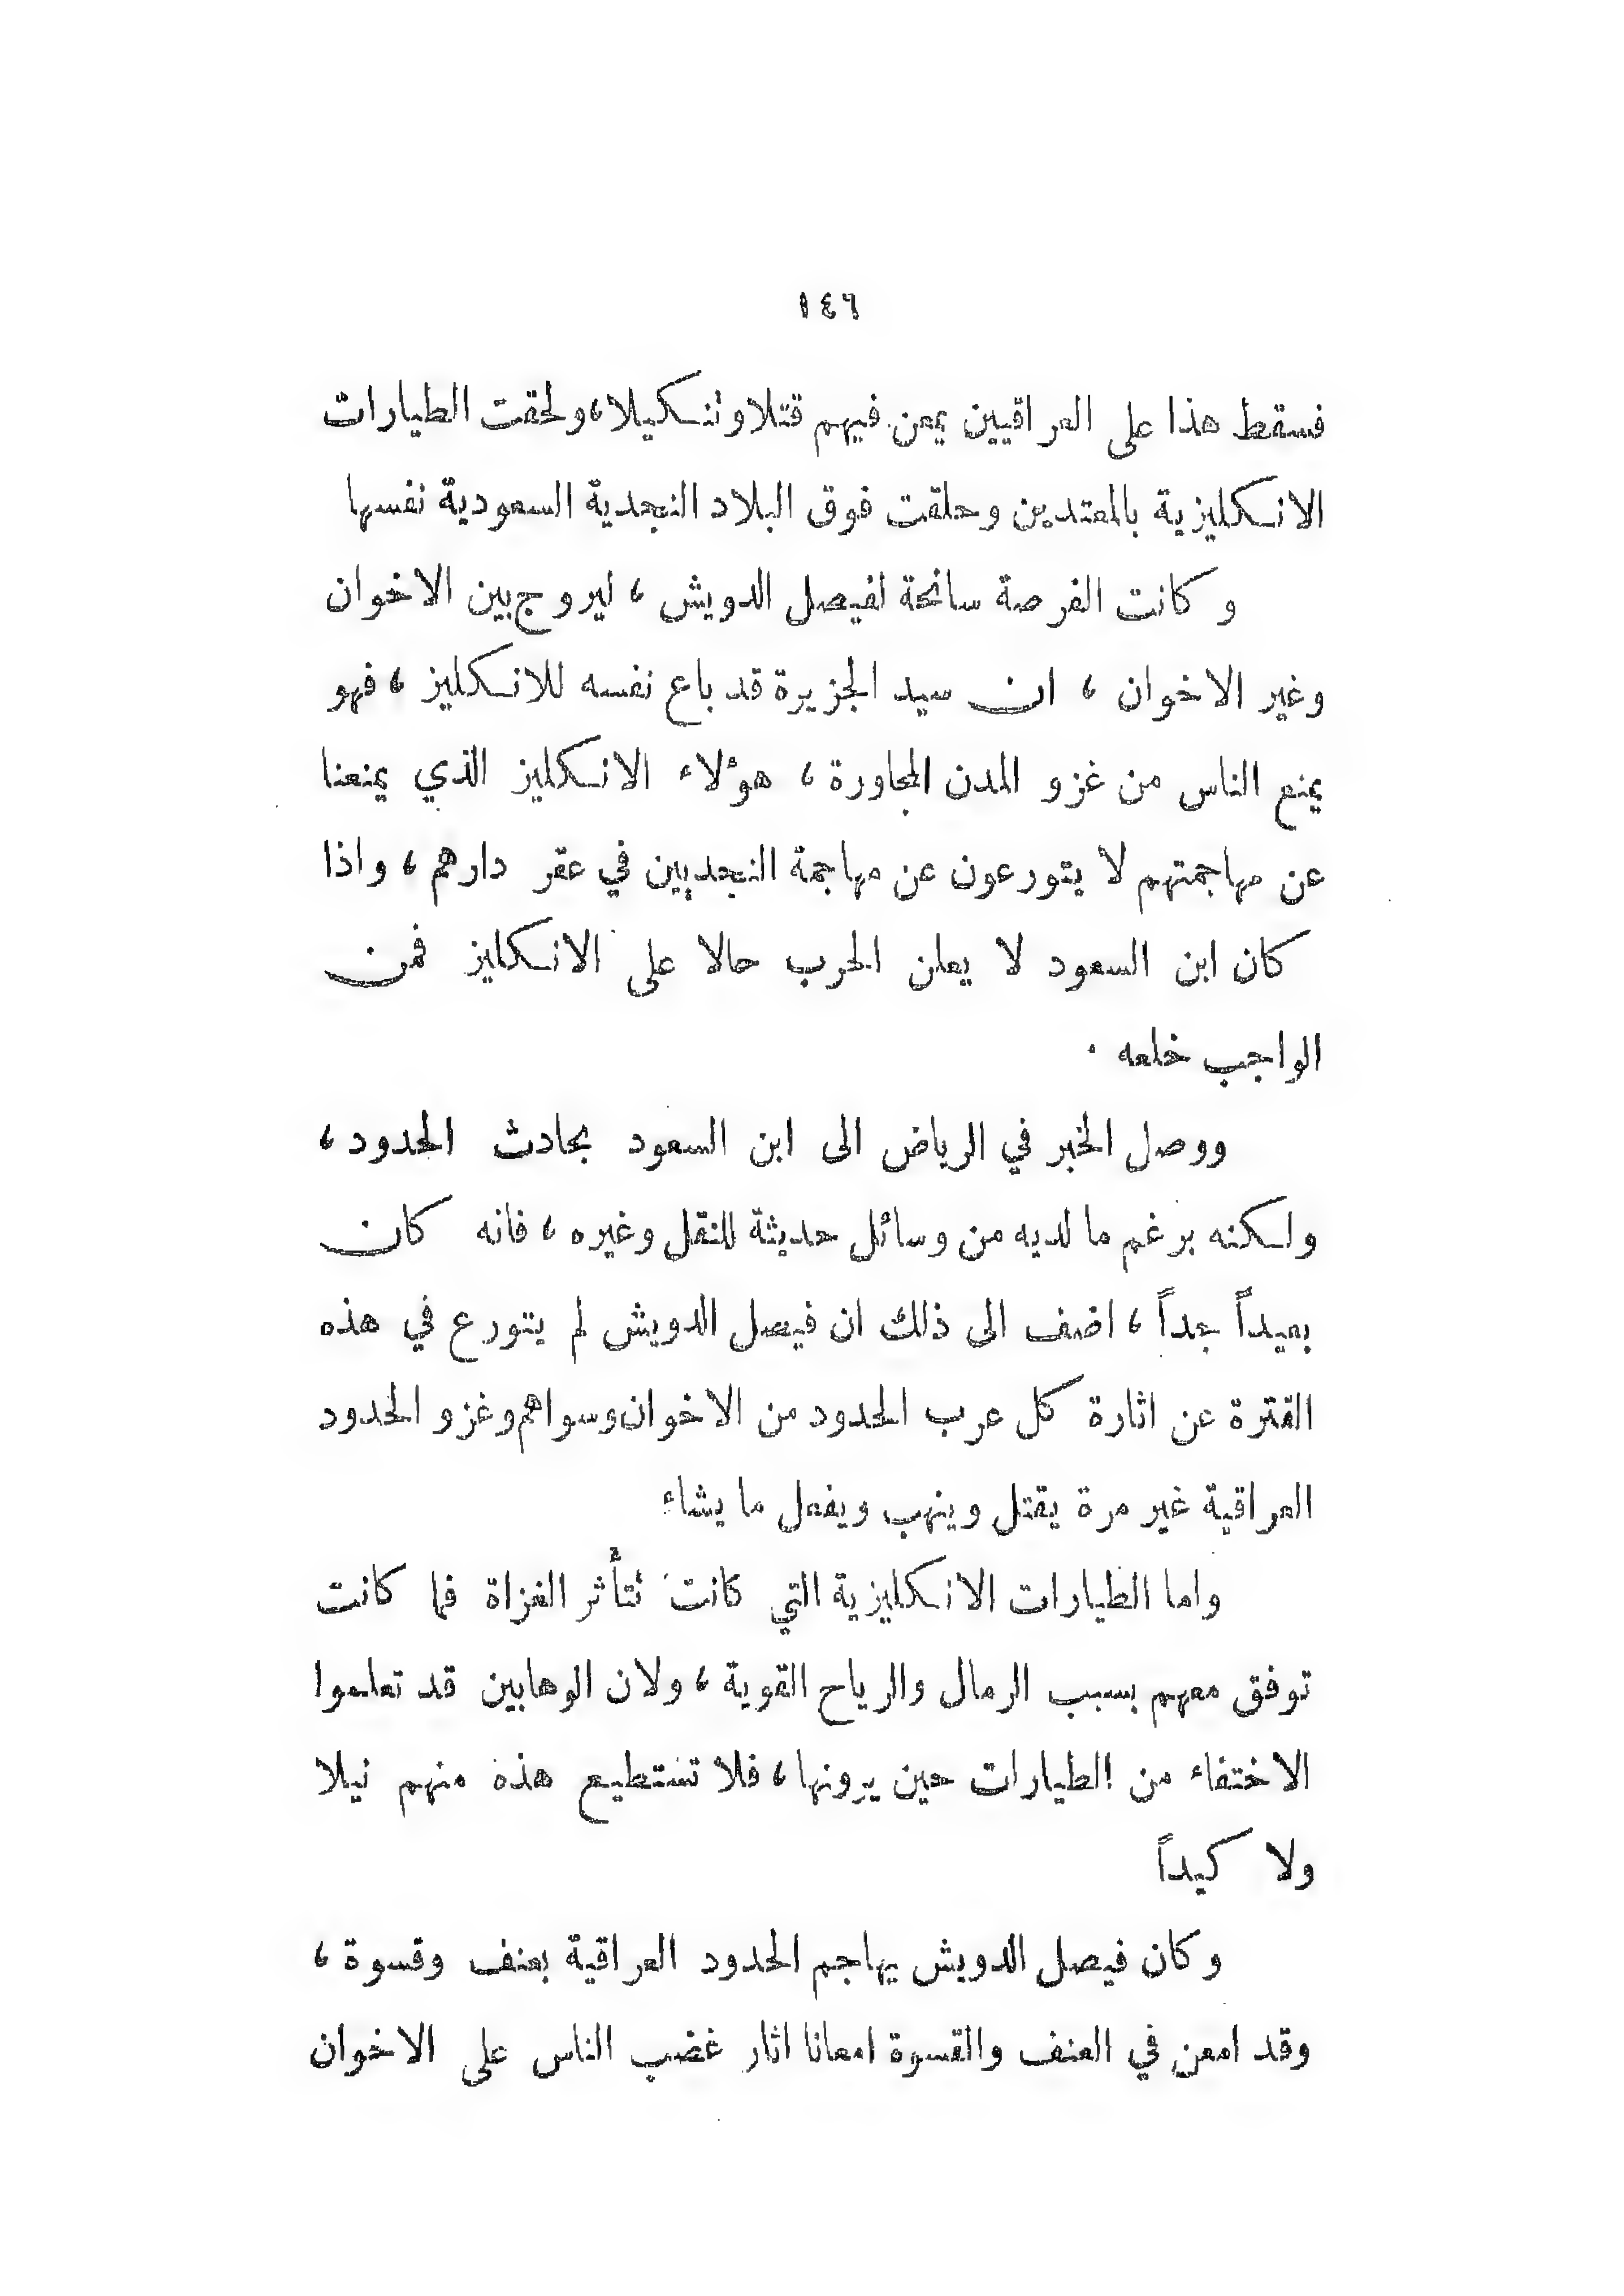 ١٤٦
فسقط هذا على العراقيين يمعن فيهم قتلا وتنكيلا، ولحقت الطيارات
الانكليزية بالمعتدين وحلقت فوق البلاد النجدية السعودية نفسها
وكانت الفرصة سانحة لفيصل الدويش ، ليروج بين الاخوان
وغير الاخوان ، ان سيد الجزيرة قد باع نفسه للانكليز ، فهو
يمنع الناس من غزو المدن المجاورة ، هؤلاء الانكليز الذي يمنعنا
عن مهاجمتهم لا يتورعون عن مهاجمة النجديين في عقر دارهم ، واذا
كان ابن السعود لا يعلن الحرب حالا على الانكليز فمن
الواجب خلعه .
ووصل الخبر في الرياض الى ابن السعود بحادث الحدود ،
ولكنه برغم ما لديه من وسائل حديثة للنقل وغيره ، فانه كان
بعيداً جداً ، اضف الى ذلك ان فيصل الدويش لم يتورع في هذه
الفترة عن اثارة كل عرب الحدود من الاخوان وسواهم وغزو الحدود
العراقية غير مرة يقتل وينهب ويفعل ما يشاء
واما الطيارات الانكليزية التي كانت تتأثر الغزاة فما كانت
توفق معهم بسبب الرمال والرياح القوية ، ولان الوهابين قد تعلموا
الاختفاء من الطيارات حين يرونها ، فلا تستطيع هذه منهم نيلا
ولا كيداً
وكان فيصل الدويش يهاجم الحدود العراقية بعنف وقسوة ،
وقد امعن في العنف والقسوة امعانا اثار غضب الناس على الاخوان